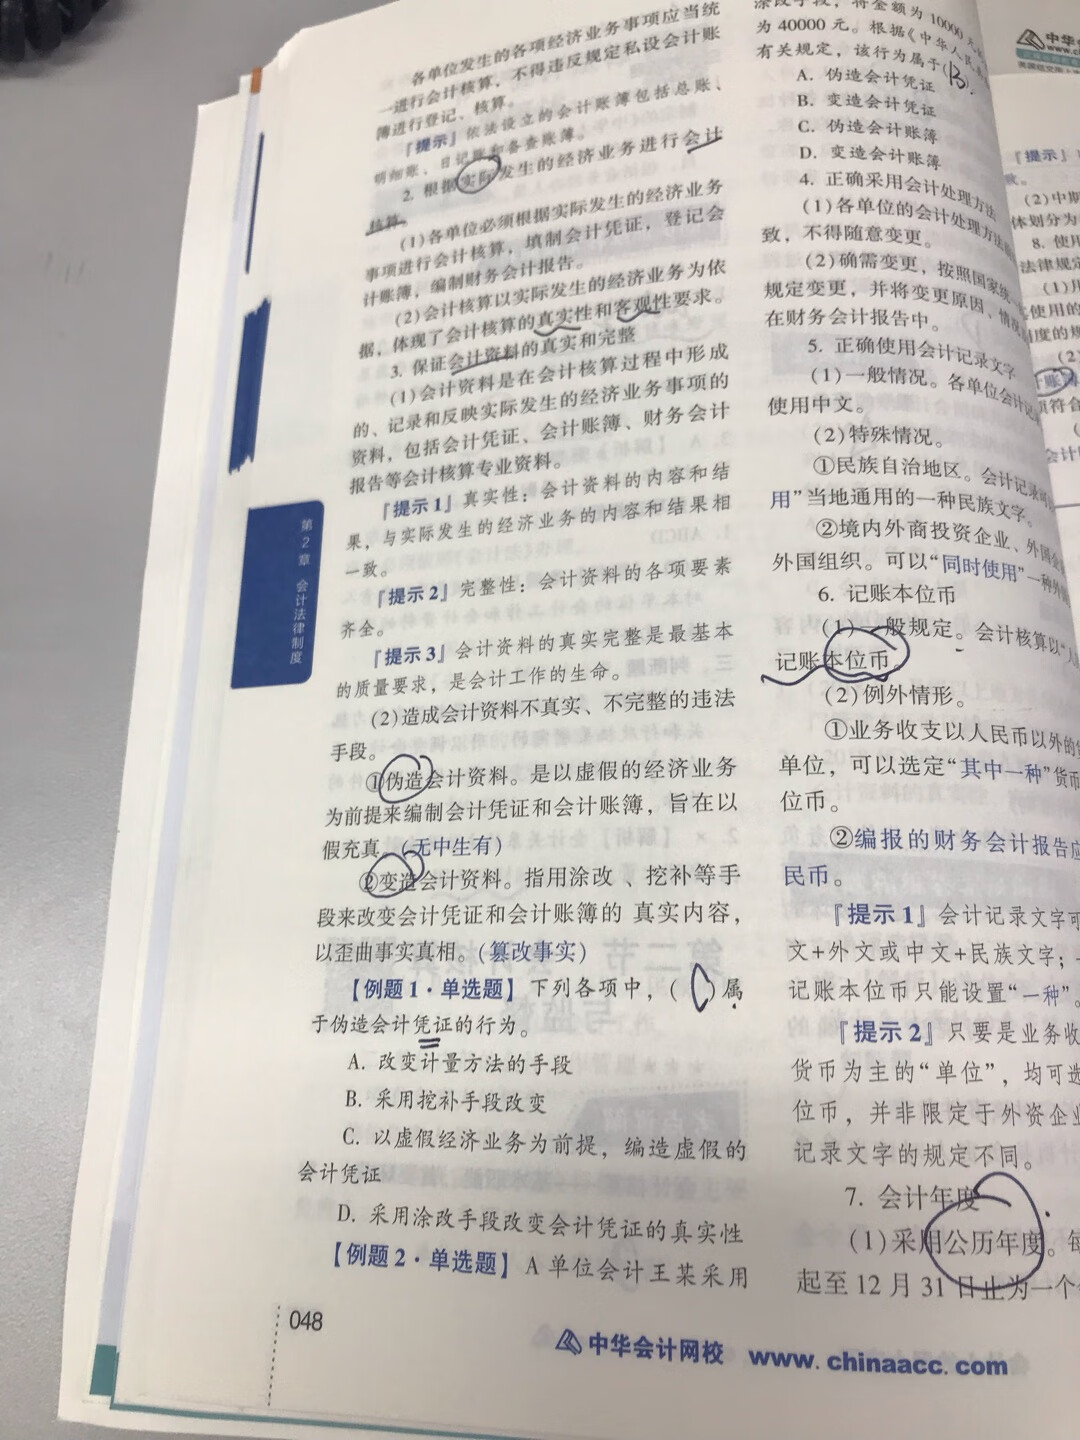 各单位发生的各项经济业务事项应当统
一进行会计核算，不得违反规定私设会计账
簿进行登记、核算。
『提示』依法设立的会计账簿包括总账、
明细账、日记账和备查账簿。
2. 根据实际发生的经济业务进行会计
核算。
(1)各单位必须根据实际发生的经济业务
事项进行会计核算，填制会计凭证，登记会
计账簿，编制财务会计报告。
(2)会计核算以实际发生的经济业务为依
据，体现了会计核算的真实性和客观性要求。
3. 保证会计资料的真实和完整
(1)会计资料是在会计核算过程中形成
的、记录和反映实际发生的经济业务事项的
资料，包括会计凭证、会计账簿、财务会计
报告等会计核算专业资料。
『提示1』真实性：会计资料的内容和结
果，与实际发生的经济业务的内容和结果相
一致。
『提示2』完整性：会计资料的各项要素
齐全。
『提示3』会计资料的真实完整是最基本
的质量要求，是会计工作的生命。
(2)造成会计资料不真实、不完整的违法
手段。
①伪造会计资料。是以虚假的经济业务
为前提来编制会计凭证和会计账簿，旨在以
假充真。(无中生有)
②变造会计资料。指用涂改、挖补等手
段来改变会计凭证和会计账簿的真实内容，
以歪曲事实真相。(篡改事实)
【例题1·单选题】下列各项中，( C )属
于伪造会计凭证的行为。
A. 改变计量方法的手段
B. 采用挖补手段改变
C. 以虚假经济业务为前提，编造虚假的
会计凭证
D. 采用涂改手段改变会计凭证的真实性
【例题2·单选题】A单位会计王某采用
涂改手段，将金额为10000元
为40000元。根据《中华人民
有关规定，该行为属于(B)。
A. 伪造会计凭证
B. 变造会计凭证
C. 伪造会计账簿
D. 变造会计账簿
4. 正确采用会计处理方法
(1)各单位的会计处理方法
致，不得随意变更。
(2)确需变更，按照国家统一
规定变更，并将变更原因、情况
在财务会计报告中。
5. 正确使用会计记录文字
(1)一般情况。各单位会计记
使用中文。
(2)特殊情况。
①民族自治地区。会计记录可
用”当地通用的一种民族文字。
②境内外商投资企业、外国企
外国组织。可以“同时使用”一种外
6. 记账本位币
(1)一般规定。会计核算以“人
记账本位币。
(2)例外情形。
①业务收支以人民币以外的
单位，可以选定“其中一种”货币
位币。
②编报的财务会计报告应
民币。
『提示1』会计记录文字可
文+外文或中文+民族文字；
记账本位币只能设置“一种”。
『提示2』只要是业务收
货币为主的“单位”，均可选
位币，并非限定于外资企业
记录文字的规定不同。
7. 会计年度
(1)采用公历年度。每
起至12月31日止为一个
『提示』
致。
(2)中期
体划分为
8. 使用
法律规定
(1)
使用的
制度的规
(2)
账簿
须符合
第2章 会计法律制度
048
中华会计网校 www.chinaacc.com